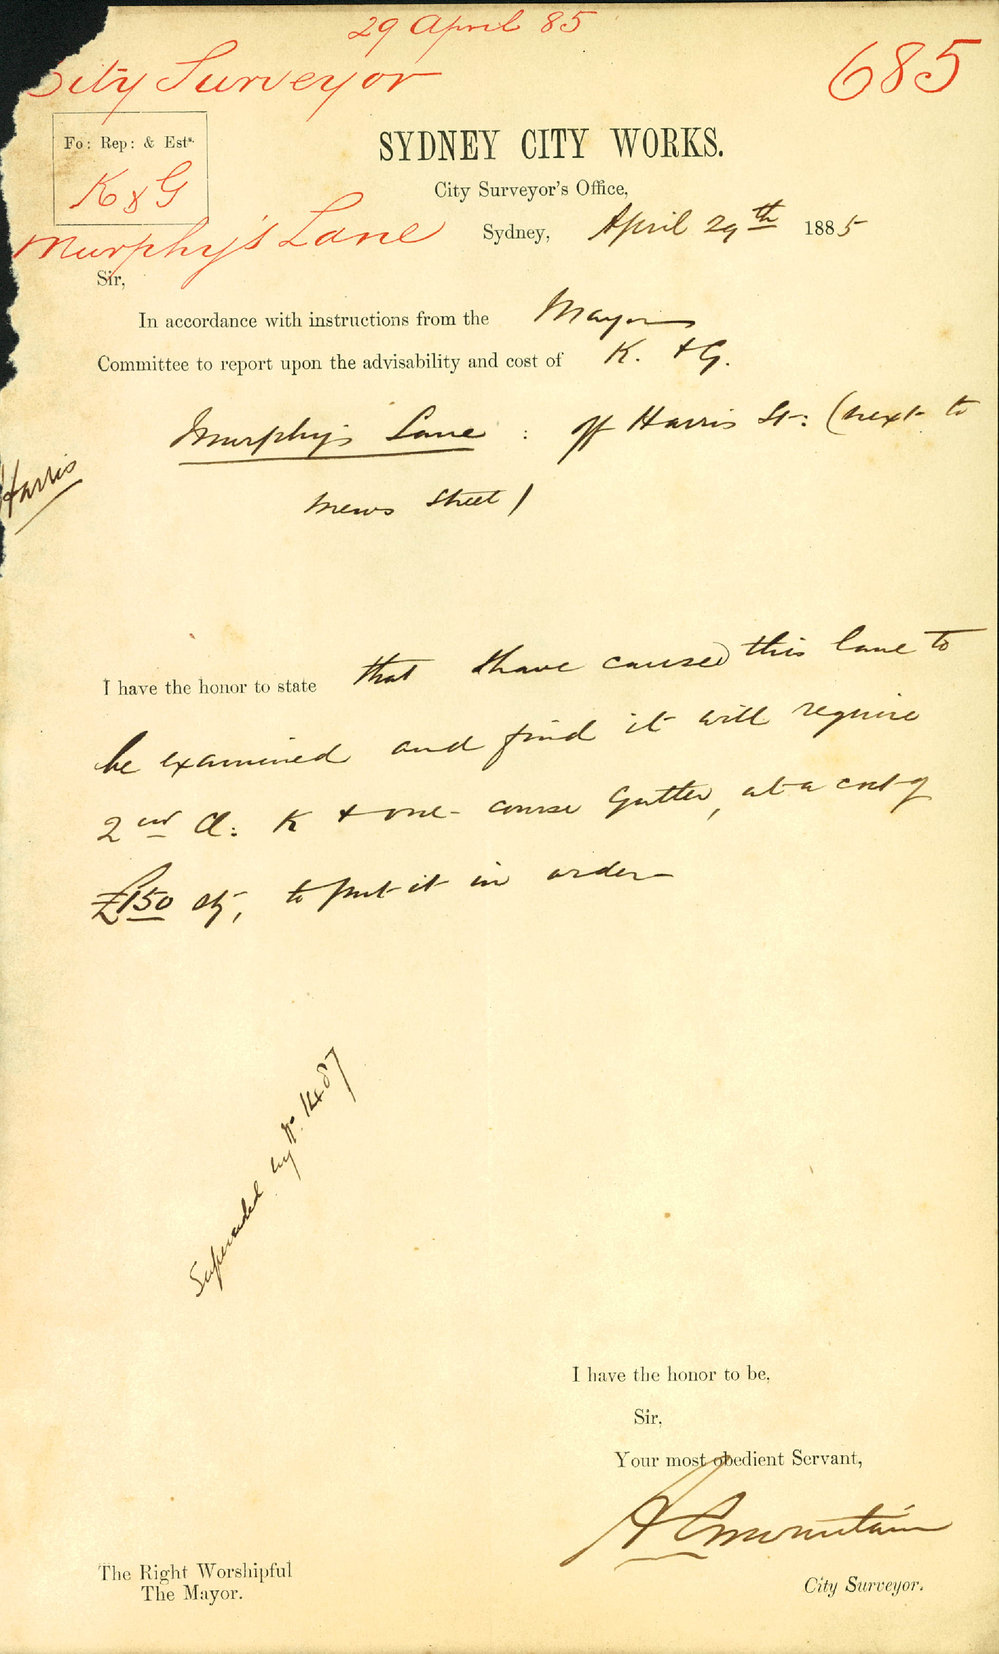 29 April 85
City Surveyor
685
Fo: Rep: & Ests.
K & G
Murphy's Lane
SYDNEY CITY WORKS.
City Surveyor's Office,
Sydney, April 29th 1885
Sir,
In accordance with instructions from the Mayor
Committee to report upon the advisability and cost of K. & G.
Murphy's Lane: off Harris St: (next to
Mews Street)
Harris
I have the honor to state that I have caused this lane to
be examined and find it will require
2nd Cl: K & one-course Gutter, at a cost of
£150 stg, to put it in order
Superseded by No. 1487
I have the honor to be,
Sir,
Your most obedient Servant,
A C Mountain
City Surveyor.
The Right Worshipful
The Mayor.